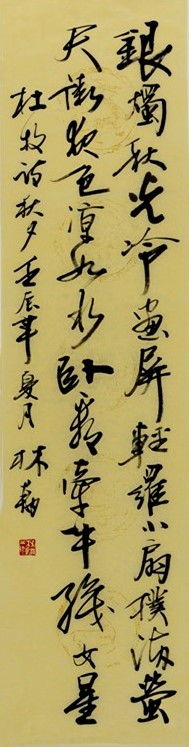 銀燭秋光冷畫屏輕羅小扇撲流螢
天街夜色涼如水臥看牽牛織女星
杜牧詩秋夕壬辰年夏月林